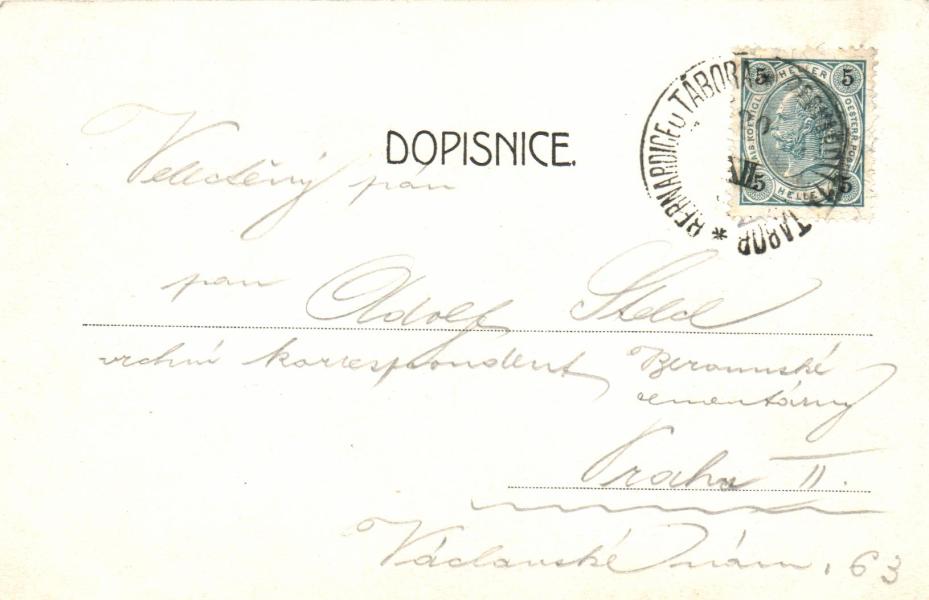 DOPISNICE.
BERNARDICE U TÁBORA
TABOR
5 HELLER 5
5 HELLER 5
Velectěný pán
pan Adolf
vrchní korrespondent Berounské
cementárny
Praha II.
Václavské nám. 63